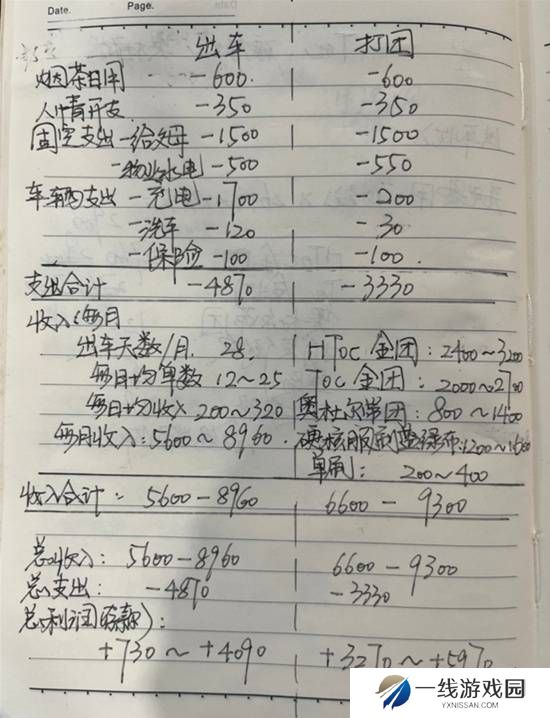 Date. Page.
出车 打团
烟茶日用 -600. -600
人情开支 -350 -350
固定支出-给父母 -1500 -1500
-物业水电 -500 -550
车辆支出-充电 -1700 -200
-洗车 -120 -30
-保险 -100 -100.
支出合计 -4870 -3330
收入(每月
出车天数/月. 28. HToc 金团: 2400~3200
每日均单数 12~25 Toc 金团: 2000~2700
每日均收入 200~320 奥杜尔单团: 800~1400
每月收入: 5600~8960. 硬核服制蓝绿布:1200~1600
单刷: 200~400
收入合计: 5600-8960 6600-9300
总收入: 5600-8960 6600-9300
总支出: -4870 -3330
总利润(存款):
+730~+4090 +3270~+5970
一线游戏园
YXNISSAN.COM